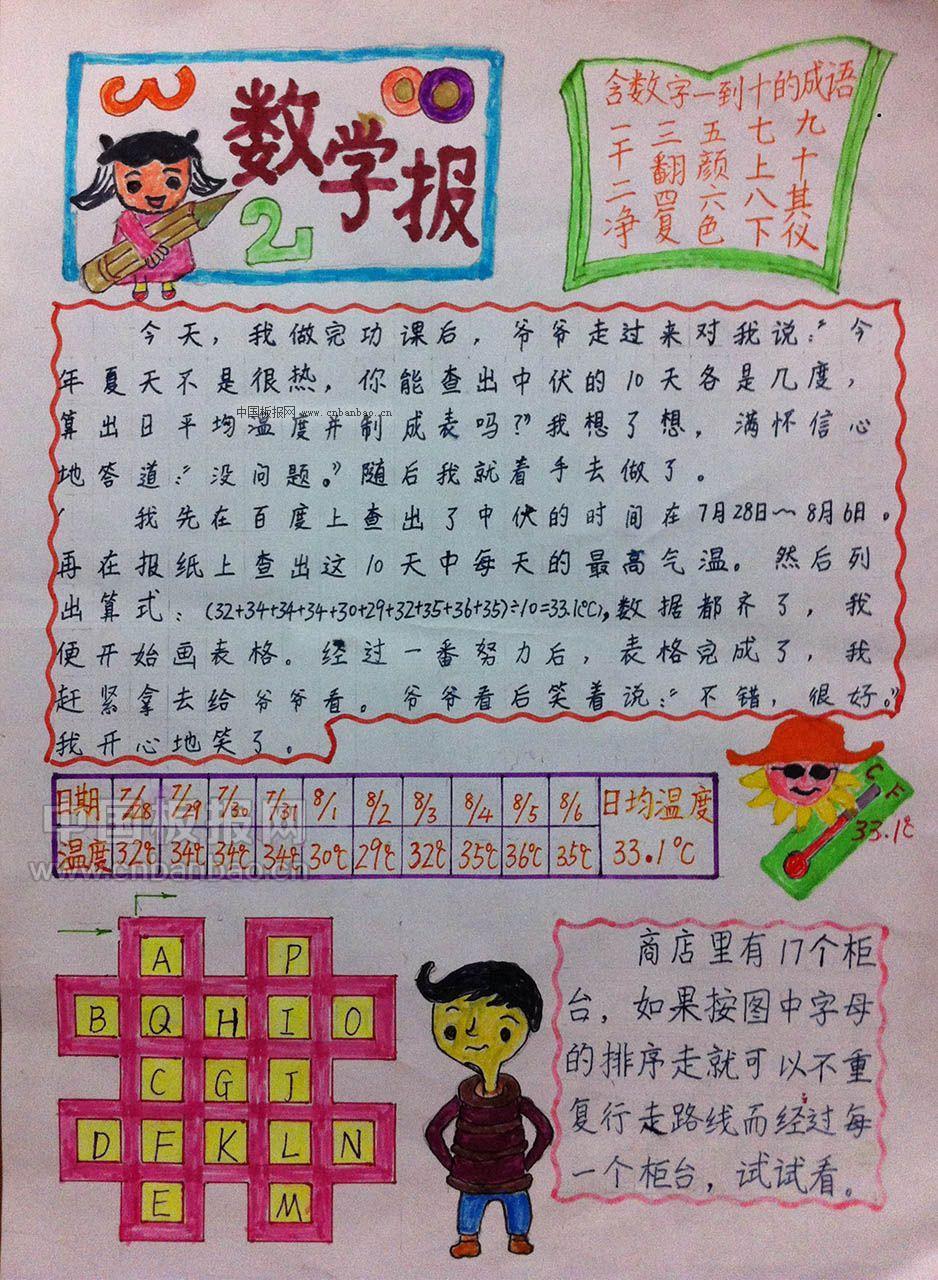 3
8
数学报
2
含数字一到十的成语
一干二净
三翻四复
五颜六色
七上八下
九十其仪
今天，我做完功课后，爷爷走过来对我说：“今
年夏天不是很热，你能查出中伏的10天各是几度，
中国板报网 www.cnbanbao.cn
算出日平均温度并制成表吗？”我想了想，满怀信心
地答道：“没问题。”随后我就着手去做了。
我先在百度上查出了中伏的时间在7月28日～8月6日。
再在报纸上查出这10天中每天的最高气温。然后列
出算式：(32+34+34+34+30+29+32+35+36+35)÷10=33.1(℃),数据都齐了，我
便开始画表格。经过一番努力后，表格完成了，我
赶紧拿去给爷爷看。爷爷看后笑着说：“不错，很好。”
我开心地笑了。
日期 7/28 7/29 7/30 7/31 8/1 8/2 8/3 8/4 8/5 8/6 日均温度
温度 32℃ 34℃ 34℃ 34℃ 30℃ 29℃ 32℃ 35℃ 36℃ 35℃ 33.1℃
C F
33.1℃
中国板报网
www.cnbanbao.cn
A P
B Q H I O
C G J
D F K L N
E M
商店里有17个柜
台，如果按图中字母
的排序走就可以不重
复行走路线而经过每
一个柜台，试试看。